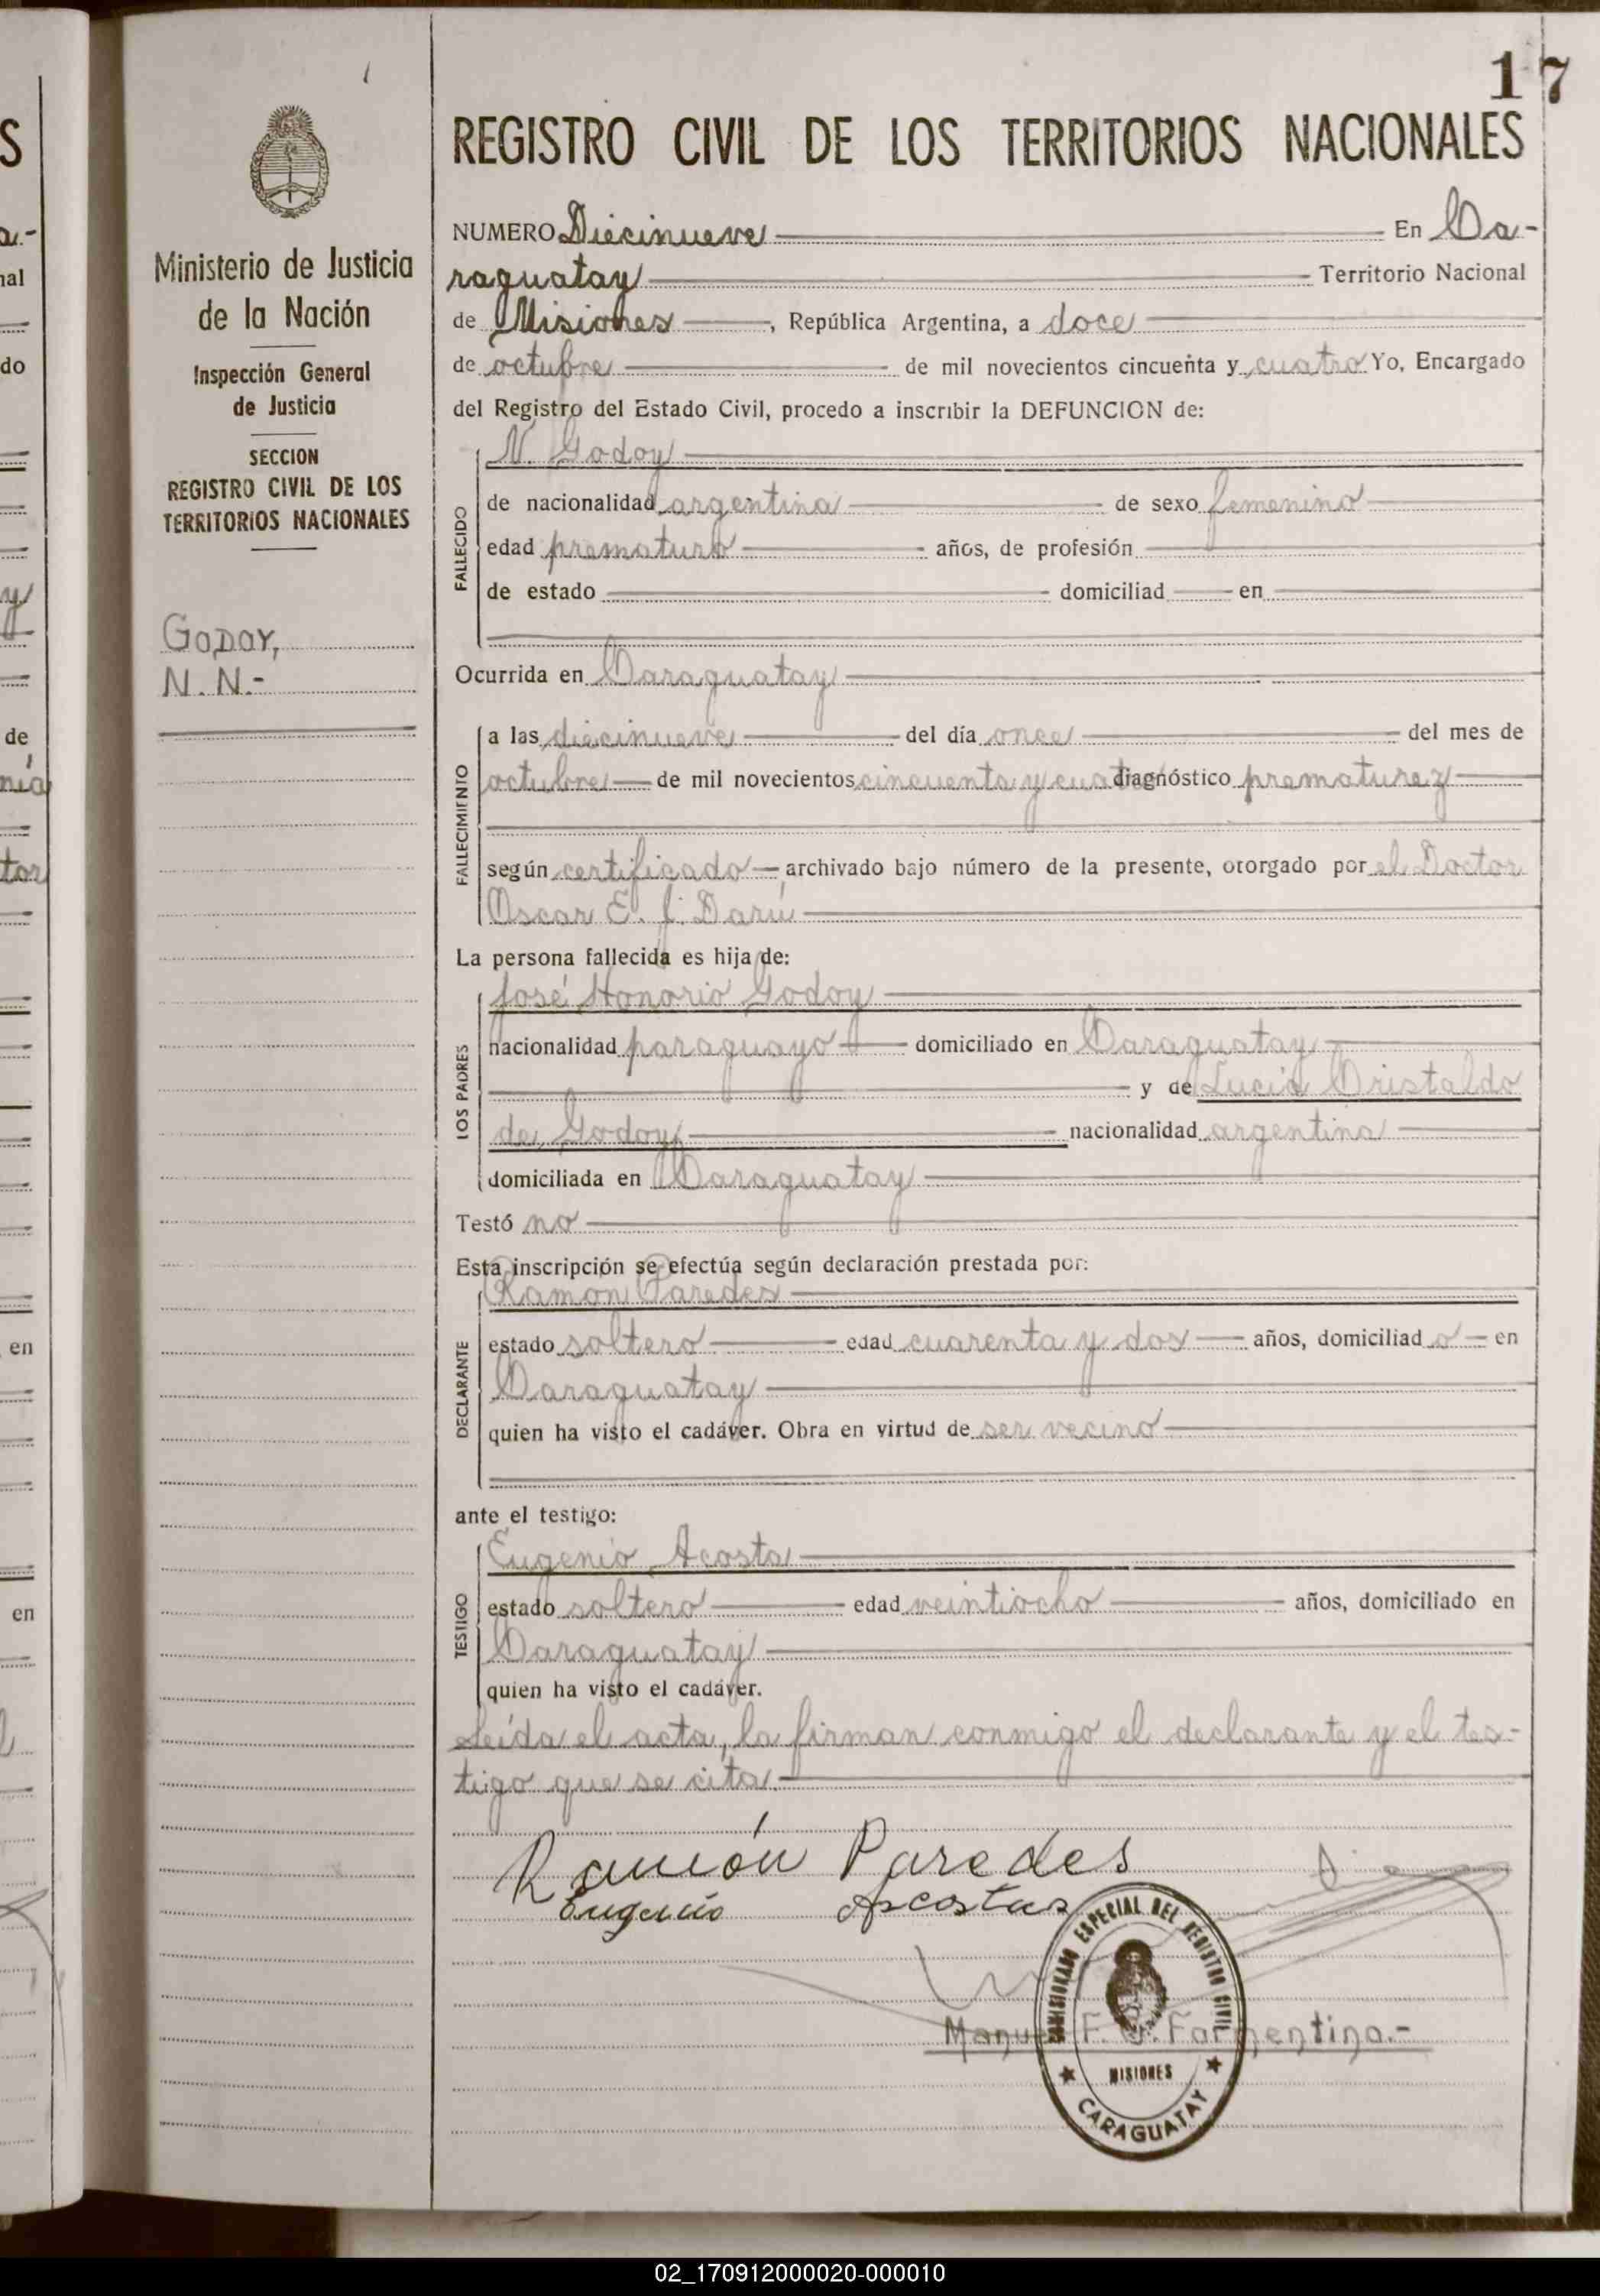 17
REGISTRO CIVIL DE LOS TERRITORIOS NACIONALES
Ministerio de Justicia
de la Nación
Inspección General
de Justicia
SECCION
REGISTRO CIVIL DE LOS
TERRITORIOS NACIONALES
GODOY,
N. N.-
NUMERO Diecinueve En Ca-
raguatay Territorio Nacional
de Misiones, República Argentina, a doce
de octubre de mil novecientos cincuenta y cuatro Yo, Encargado
del Registro del Estado Civil, procedo a inscribir la DEFUNCION de:
FALLECIDO
N. Godoy
de nacionalidad argentina de sexo femenino
edad prematuro años, de profesión
de estado domiciliad en
Ocurrida en Caraguatay
FALLECIMIENTO
a las diecinueve del día once del mes de
octubre de mil novecientos cincuenta y cuatro diagnóstico prematurez
según certificado archivado bajo número de la presente, otorgado por el Doctor
Oscar E. J. Darú
La persona fallecida es hija de:
LOS PADRES
José Honorio Godoy
nacionalidad paraguayo domiciliado en Caraguatay
y de Lucia Cristaldo
de Godoy nacionalidad argentina
domiciliada en Caraguatay
Testó no
Esta inscripción se efectúa según declaración prestada por:
DECLARANTE
Ramón Paredes
estado soltero edad cuarenta y dos años, domiciliad o en
Caraguatay
quien ha visto el cadáver. Obra en virtud de ser vecino
ante el testigo:
TESTIGO
Eugenio Acosta
estado soltero edad veintiocho años, domiciliado en
Caraguatay
quien ha visto el cadáver.
Leída el acta, la firman conmigo el declarante y el tes-
tigo que se cita.
Ramón Paredes
Eugenio Acosta
COMISIONADO ESPECIAL DEL REGISTRO CIVIL
Manuel F. Formentino.-
MISIONES
CARAGUATAY
02_170912000020-000010